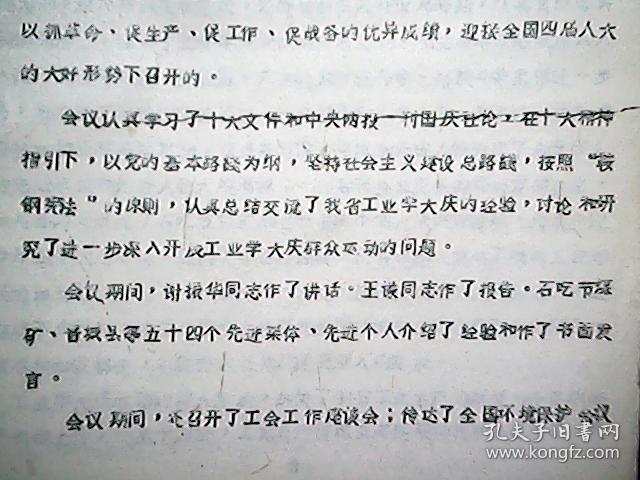 以抓革命、促生产、促工作、促战备的优异成绩，迎接全国四届人大
的大好形势下召开的。
会议认真学习了十大文件和中央两报一刊国庆社论，在十大精神
指引下，以党的基本路线为纲，坚持社会主义建设总路线，按照“鞍
钢宪法”的原则，认真总结交流了我省工业学大庆的经验，讨论和研
究了进一步深入开展工业学大庆群众运动的问题。
会议期间，谢振华同志作了讲话。王谦同志作了报告。石圪节煤
矿、晋城县等五十四个先进集体、先进个人介绍了经验和作了书面发
言。
会议期间，还召开了工会工作座谈会；传达了全国环境保护会议
孔夫子旧书网
www.kongfz.com